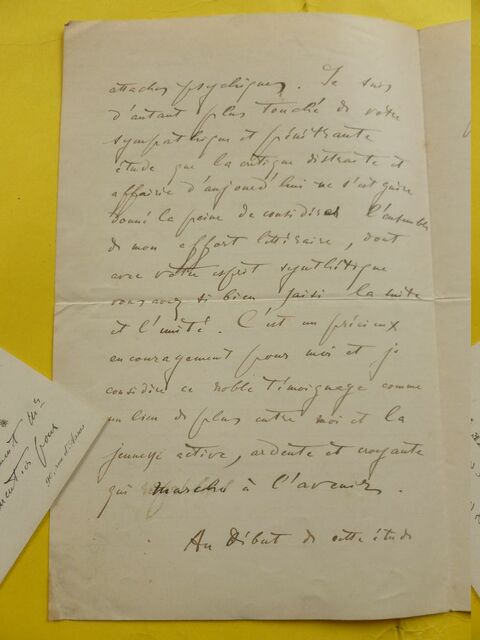 attaches psychiques. Je suis
d'autant plus touché de votre
sympathique et pénétrante
étude que la critique distraite et
affairée d'aujourd'hui ne s'est guère
donné la peine de considérer l'ensemble
de mon effort littéraire, dont
avec votre esprit synthétique
vous avez si bien saisi la suite
et l'unité. C'est un précieux
encouragement pour moi et je
considère ce noble témoignage comme
un lien de plus entre moi et la
jeunesse active, ardente et croyante
qui marche à l'avenir.
Au début de cette étude